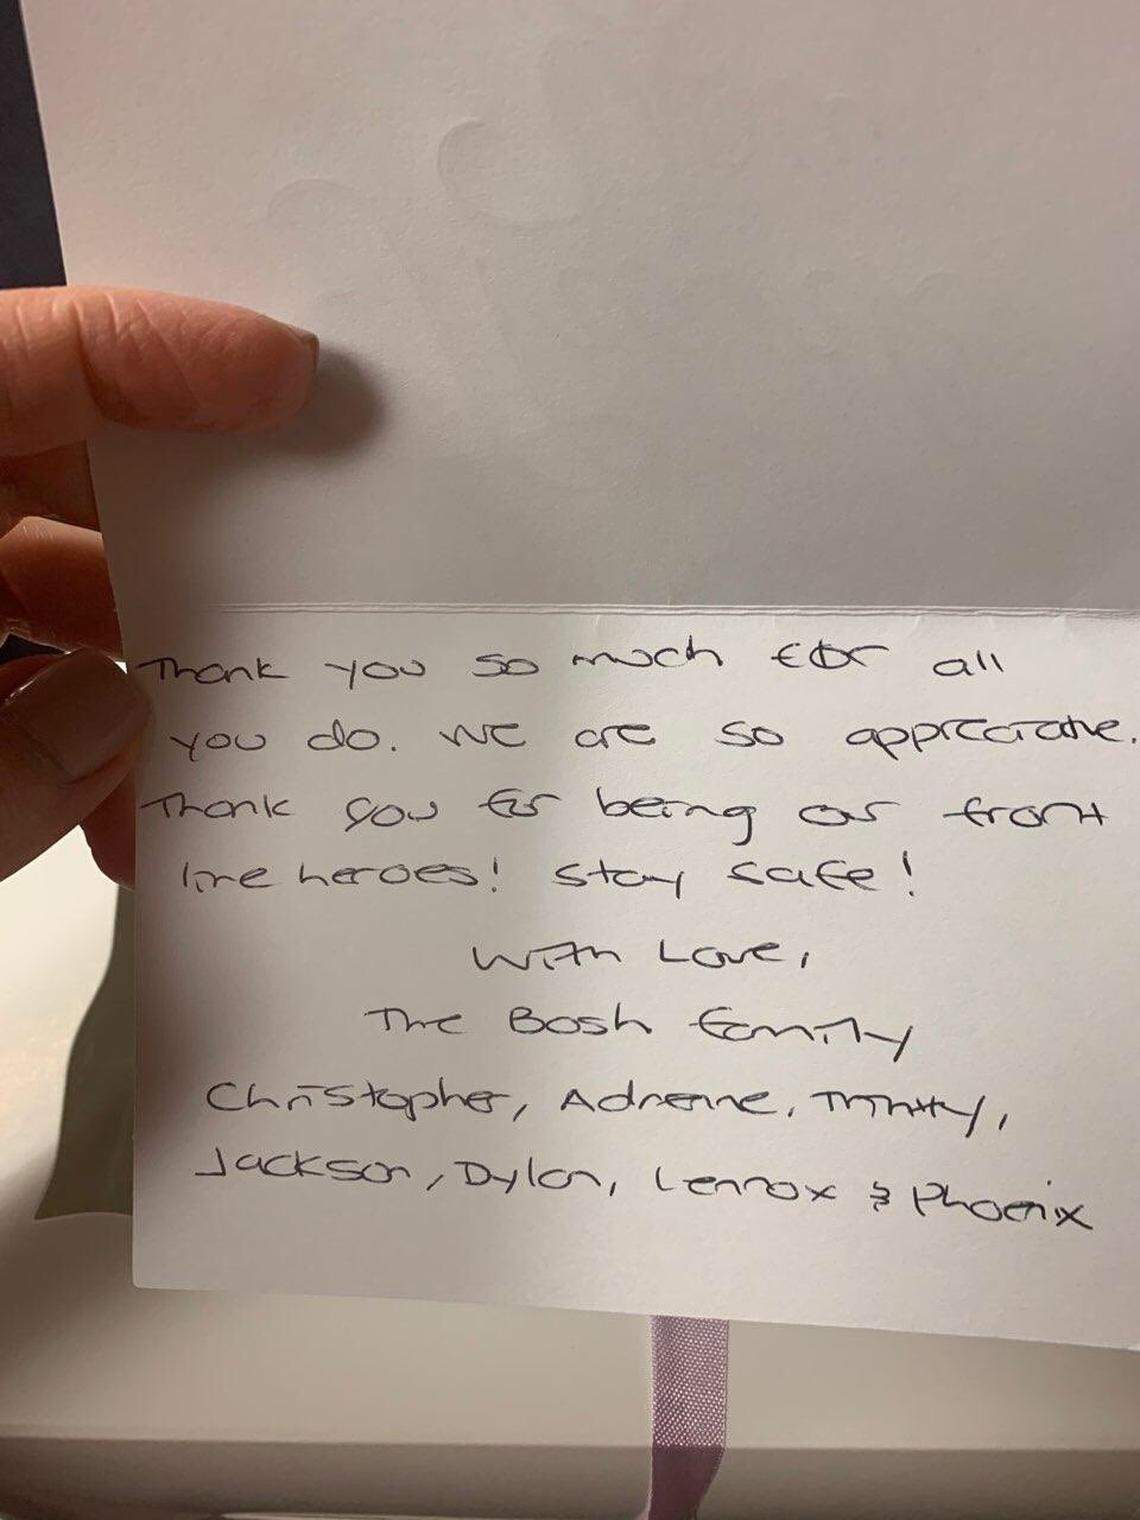 Thank you so much for all
you do. We are so appreciative.
Thank you for being our front
line heroes! Stay safe!
With Love,
The Bosh Family
Christopher, Adrienne, Trinity,
Jackson, Dylan, Lennox & Phoenix